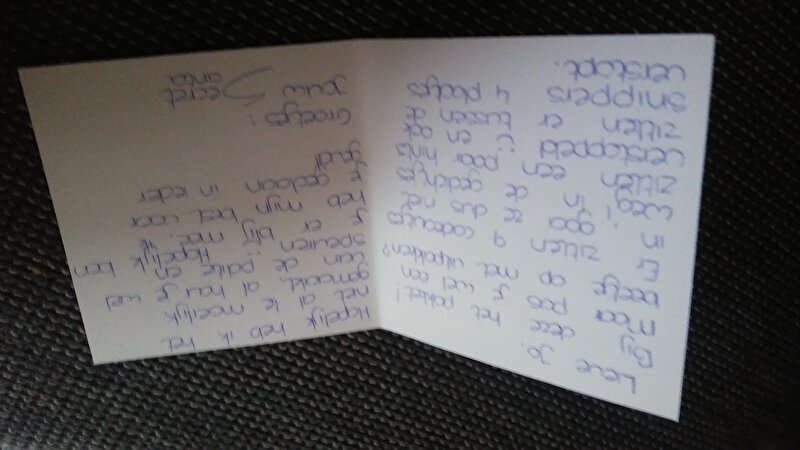 Lieve Jo.
Bij deze het pakket!
Maar pas je wel een
beetje op met uitpakken?
Er zitten 9 cadeautjes
in. gooi ze dus niet
weg! in de gedichtjes
zitten een paar hints
verstopped :) en ook
zitten er tussen de
snippers 4 plaatjes
verstopt.
Hopelijk heb ik het
net al te moeilijk
gemaakt, al hou je wel
van de puzzle en
speuren :) Hopelijk ben
je er blij mee. ik
heb mijn best voor
je gedaan in ieder
geval
Groetjes:
jouw Secret
Santa